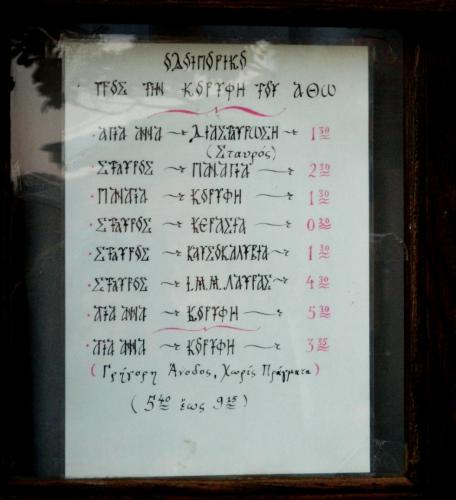 ΟΔΟΙΠΟΡΙΚΟ
ΠΡΟΣ ΤΗΝ ΚΟΡΥΦΗ ΤΟΥ ΑΘΩ
· ΑΓΙΑ ΑΝΝΑ ~ ΔΙΑΣΤΑΥΡΩΣΗ ~ 1 30
(Σταυρός)
· ΣΤΑΥΡΟΣ ~ ΠΑΝΑΓΙΑ ~ 2 30
· ΠΑΝΑΓΙΑ ~ ΚΟΡΥΦΗ ~ 1 30
· ΣΤΑΥΡΟΣ ~ ΚΕΡΑΣΙΑ ~ 0 20
· ΣΤΑΥΡΟΣ ~ ΚΑΥΣΟΚΑΛΥΒΙΑ ~ 1 30
· ΣΤΑΥΡΟΣ ~ Ι.Μ.Μ. ΛΑΥΡΑΣ ~ 4 30
· ΑΓΙΑ ΑΝΝΑ ~ ΚΟΡΥΦΗ ~ 5 30
· ΑΓΙΑ ΑΝΝΑ ~ ΚΟΡΥΦΗ ~ 3 35
(Γρήγορη Άνοδος, Χωρίς Πράγματα)
(5 40 έως 9 15)